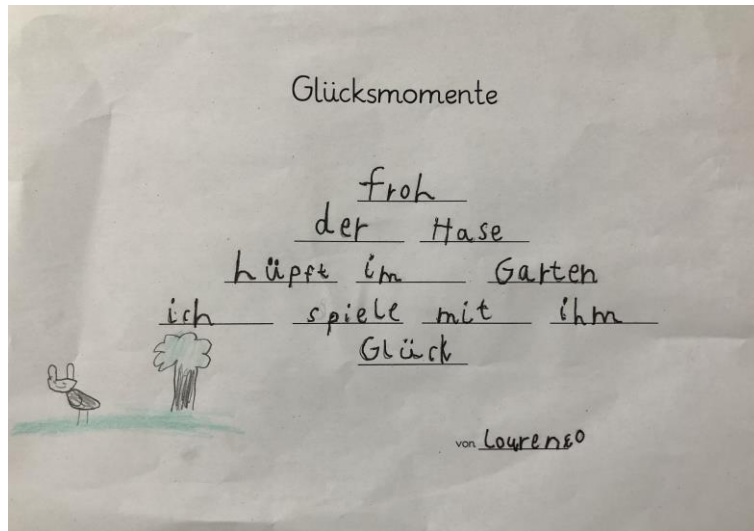 Glücksmomente
froh
der Hase
hüpft im Garten
ich spiele mit ihm
Glück
von Lourenço